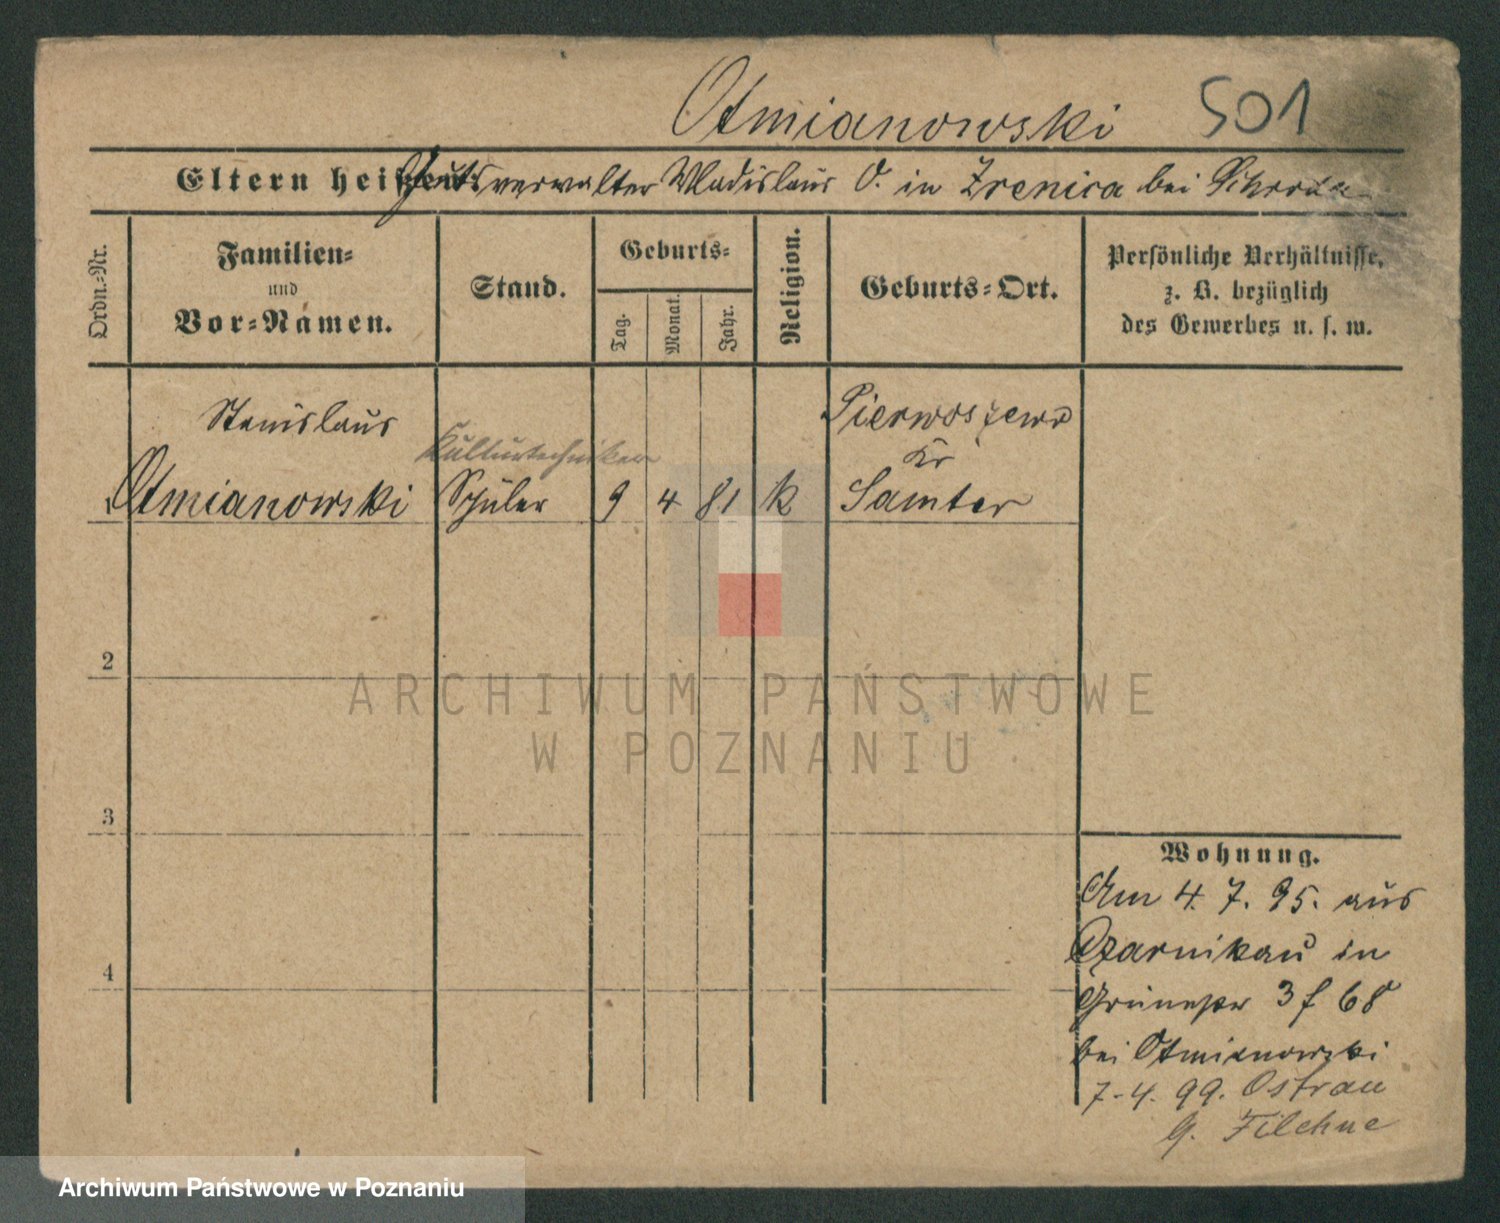 Otmianowski 501
Eltern heißen: Gutsverwalter Wladislaus O. in Zrenica bei Schroda
Ordn.=Nr.
Familien=
und
Vor=Namen.
Stand.
Geburts=
Tag.
Monat.
Jahr.
Religion.
Geburts=Ort.
Persönliche Verhältnisse,
z. B. bezüglich
des Gewerbes u. s. w.
Stanislaus
Otmianowski
Kulturtechniker
Schüler
9 4 81 k
Pierwoszewo
Kr
Samter
2
3
4
Wohnung.
Am 4. 7. 95. aus
Czarnikau in
Grünestr 3 f 68
bei Otmianowski
7-4. 99. Ostrau
G. Filehne
ARCHIWUM PAŃSTWOWE
W POZNANIU
Archiwum Państwowe w Poznaniu